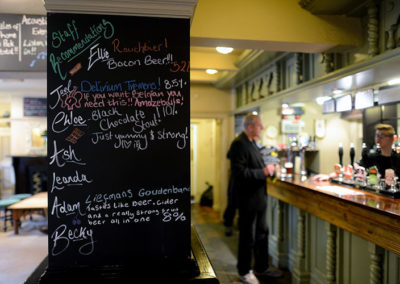 Staff
Recommendations
Ellie Rauchbier!
Bacon Beer!!! 5.2%
Joel Delirium Tremens! 8.5%
If you want Belgian you
need this!! Amazeballs!
Chloe Black 10%
Chocolate Stout!
Just yummy & strong!
Ash
Leandra
Adam Liefmans Goudenband
Tastes like beer, cider
and a really strong fruit
beer all in one 8%
Becky